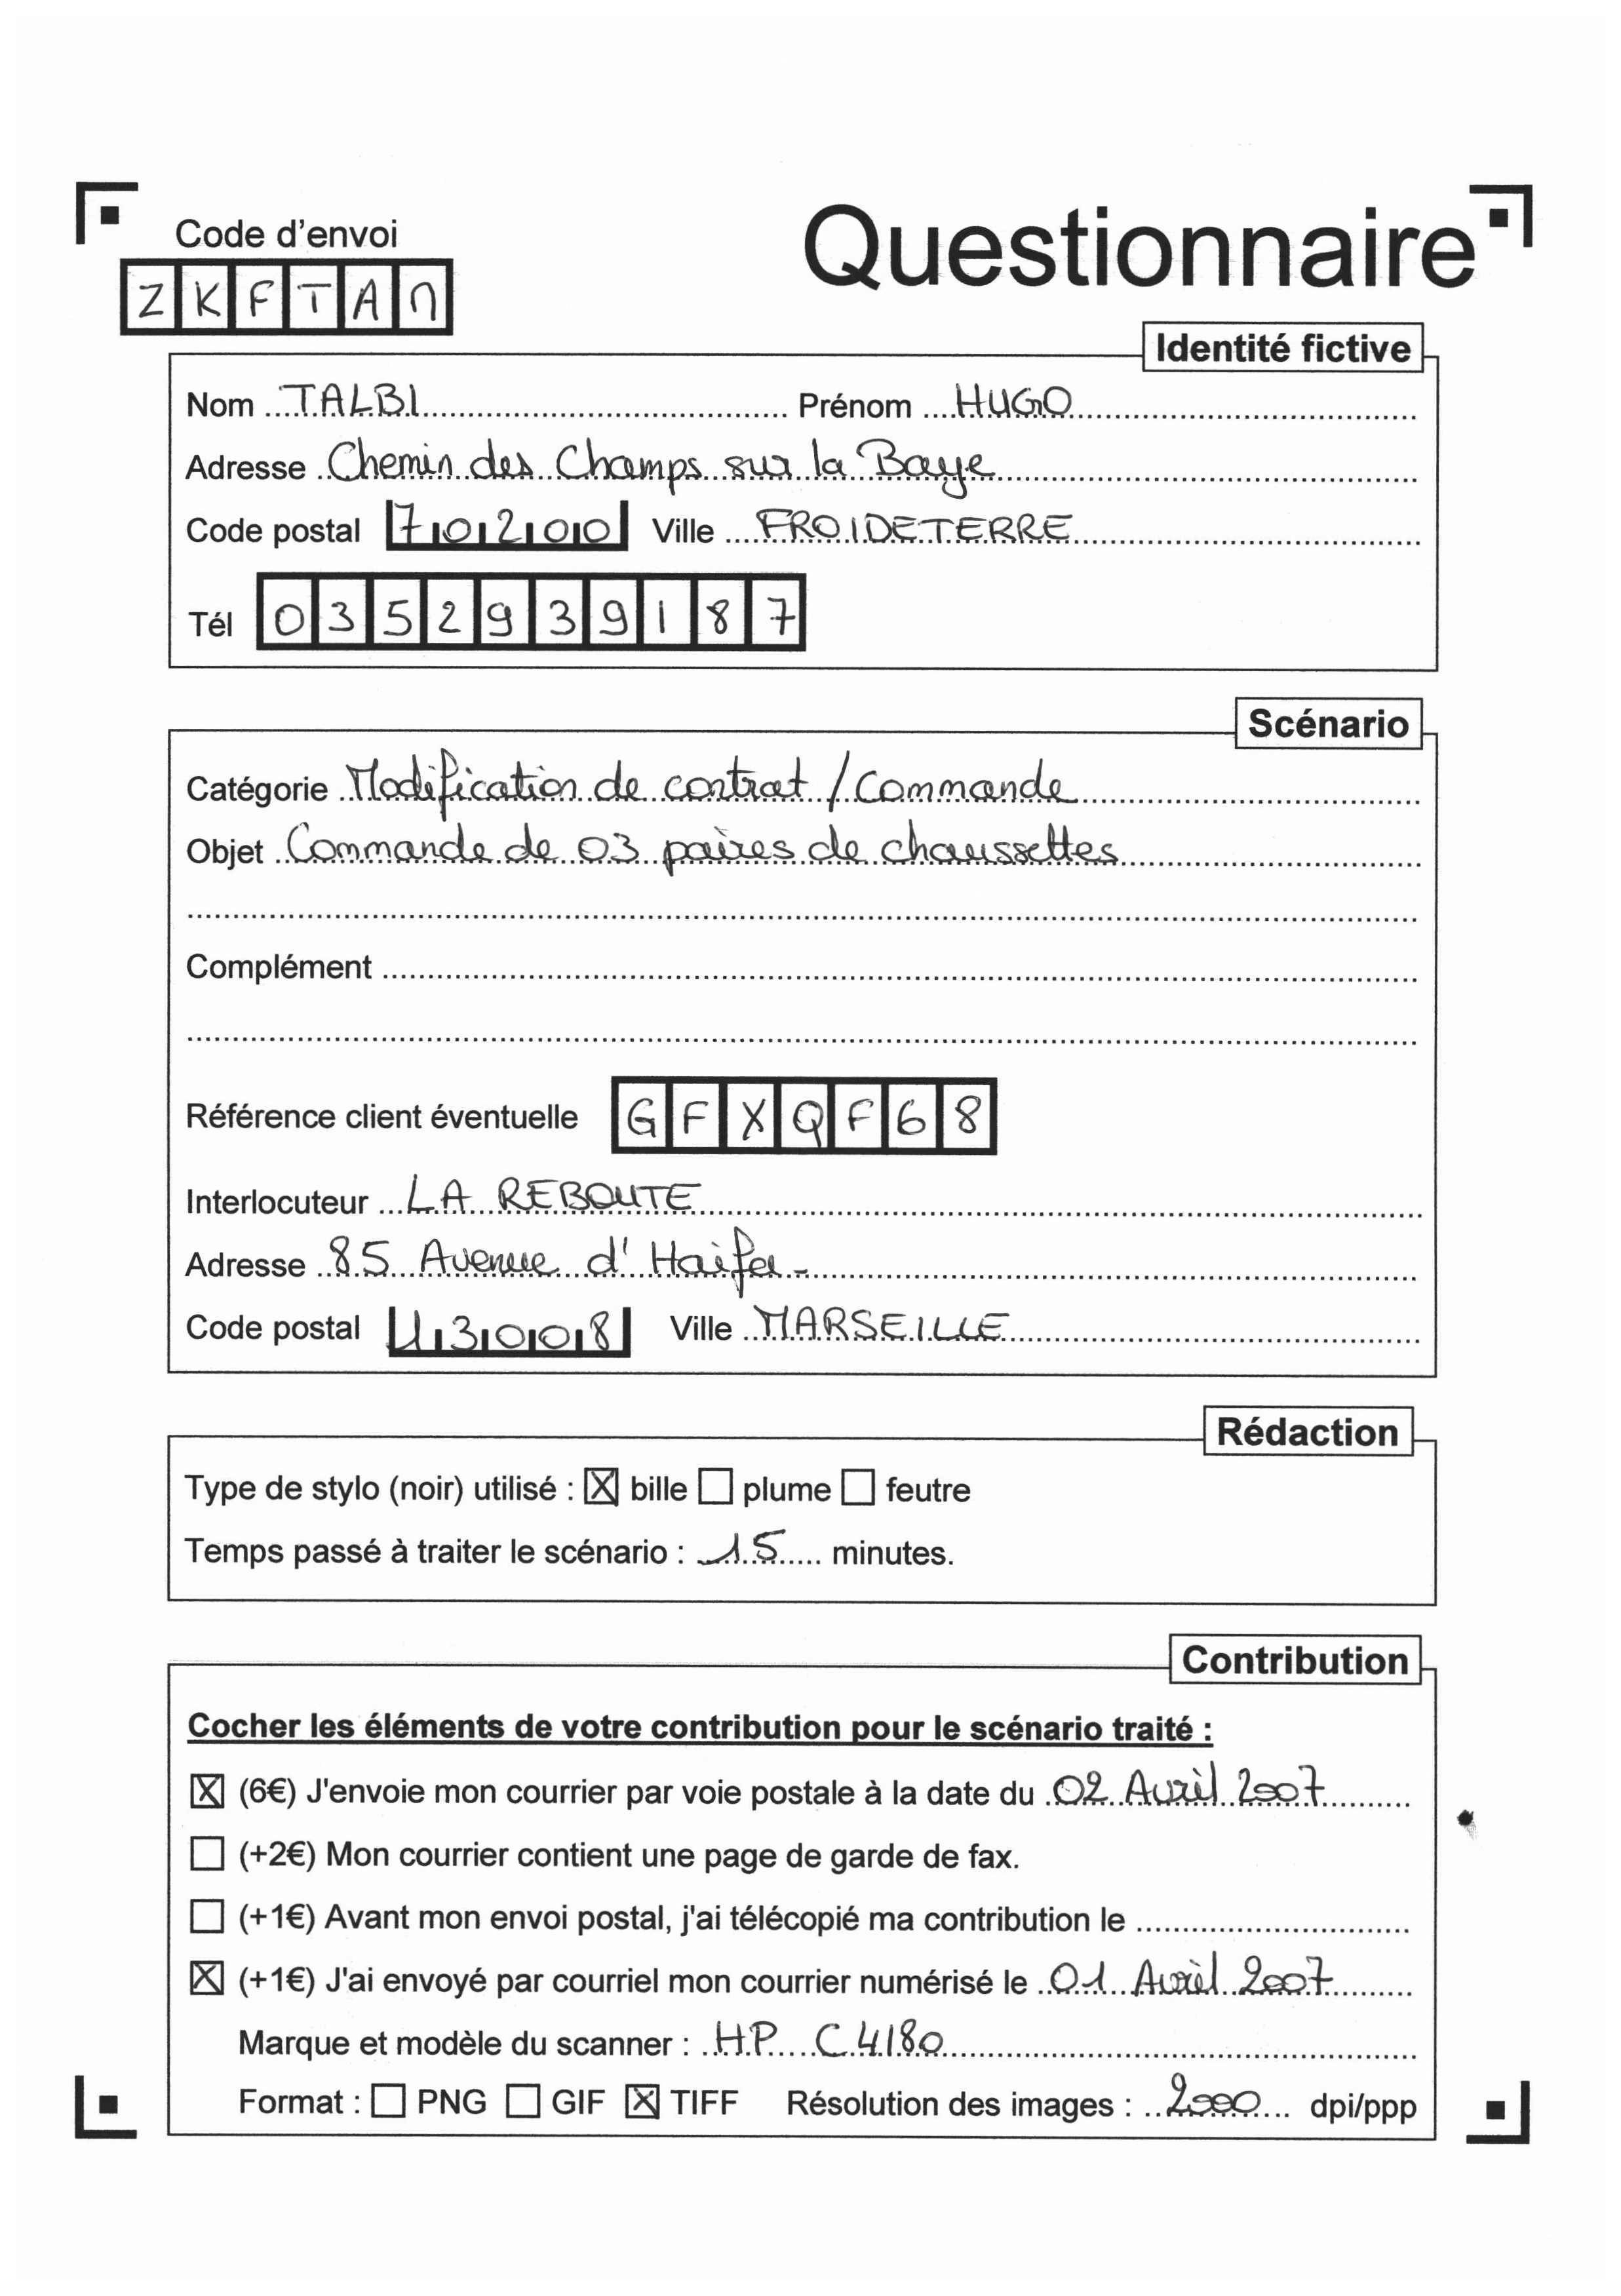 Code d'envoi
Questionnaire
Z K F T A M
Identité fictive
Nom TALBI Prénom HUGO
Adresse Chemin des Champs sur la Baye
Code postal 70200 Ville FROIDETERRE
Tél 0352939187
Scénario
Catégorie Modification de contrat / Commande
Objet Commande de 03 paires de chaussettes
Complément
Référence client éventuelle GFXQF68
Interlocuteur LA REBOUTE
Adresse 85 Avenue d'Haifa-
Code postal 13008 Ville MARSEILLE
Rédaction
Type de stylo (noir) utilisé : ☒ bille ☐ plume ☐ feutre
Temps passé à traiter le scénario : 15 minutes.
Contribution
Cocher les éléments de votre contribution pour le scénario traité :
☒ (6€) J'envoie mon courrier par voie postale à la date du 02 Avril 2007
☐ (+2€) Mon courrier contient une page de garde de fax.
☐ (+1€) Avant mon envoi postal, j'ai télécopié ma contribution le
☒ (+1€) J'ai envoyé par courriel mon courrier numérisé le 01 Avril 2007
Marque et modèle du scanner : HP C4180
Format : ☐ PNG ☐ GIF ☒ TIFF Résolution des images : 2000 dpi/ppp